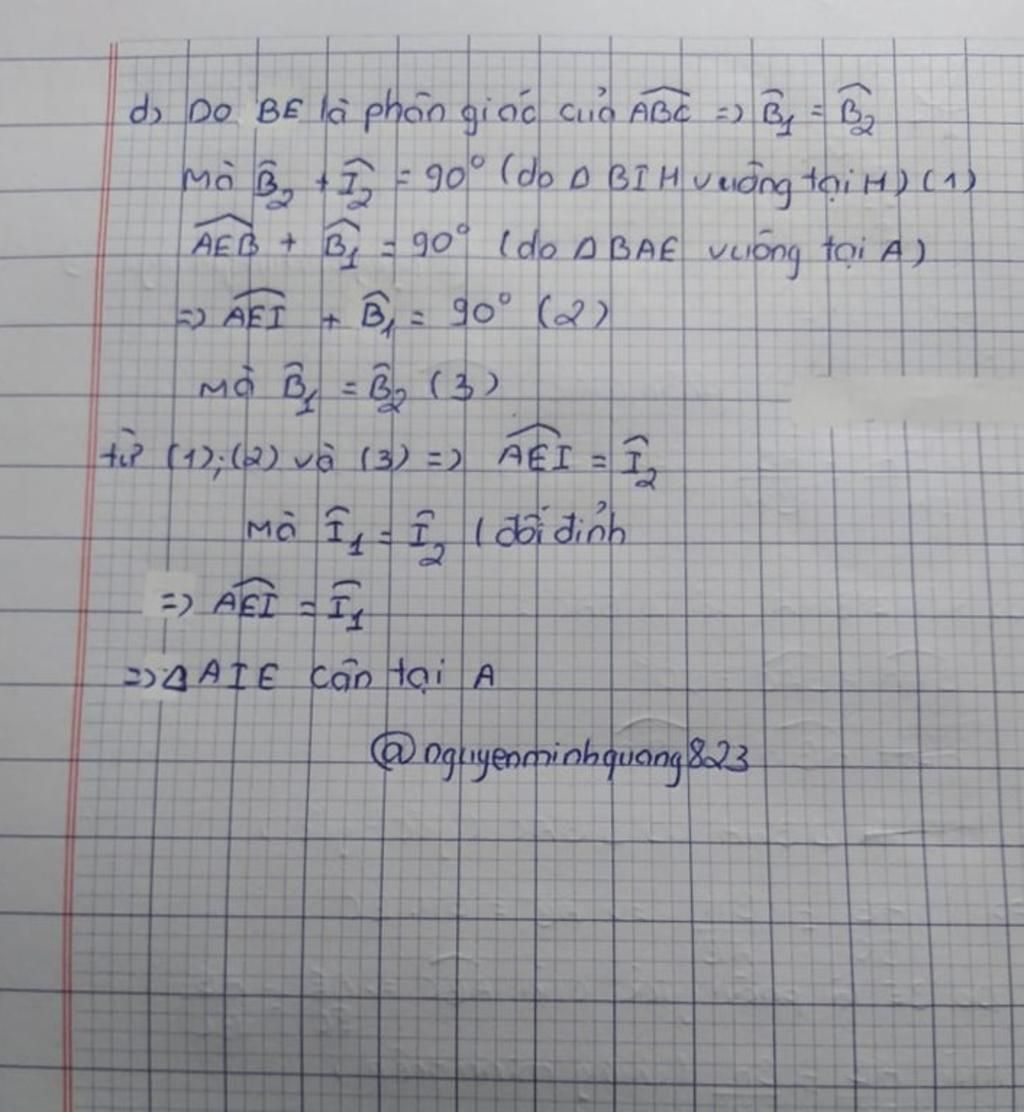 d) Do BE là phân giác của $\widehat{ABC}$ => $\widehat{B}_1$ = $\widehat{B}_2$
Mà $\widehat{B}_2$ + $\widehat{I}_2$ = 90° (do Δ BIH vuông tại H) (1)
$\widehat{AEB}$ + $\widehat{B}_1$ = 90° (do Δ BAE vuông tại A)
=> $\widehat{AEI}$ + $\widehat{B}_1$ = 90° (2)
Mà $\widehat{B}_1$ = $\widehat{B}_2$ (3)
từ (1);(2) và (3) => $\widehat{AEI}$ = $\widehat{I}_2$
Mà $\widehat{I}_1$ = $\widehat{I}_2$ (đối đỉnh
=> $\widehat{AEI}$ = $\widehat{I}_1$
=> Δ AIE cân tại A
@nguyenminhquang823